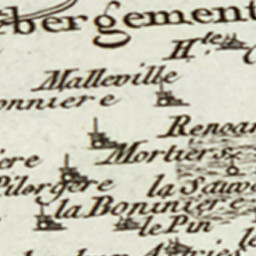 ebergement
H.te
Malleville
onniere
Renoar
Mortiers
ere
Pilorgere
la Sauv
la Boniniere
le Pin